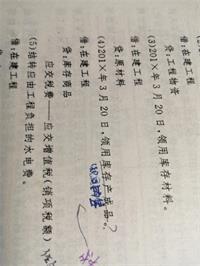 借:在建工程
贷:工程物资
(3)201×年3月20日,领用库存材料。
借:在建工程
贷:原材料
(4)201×年3月20日,领用库存产成品。
借:在建工程
贷:库存商品
应交税费——应交增值税(销项税额)
(5)结转应由工程负担的水电费。
借:在建工程